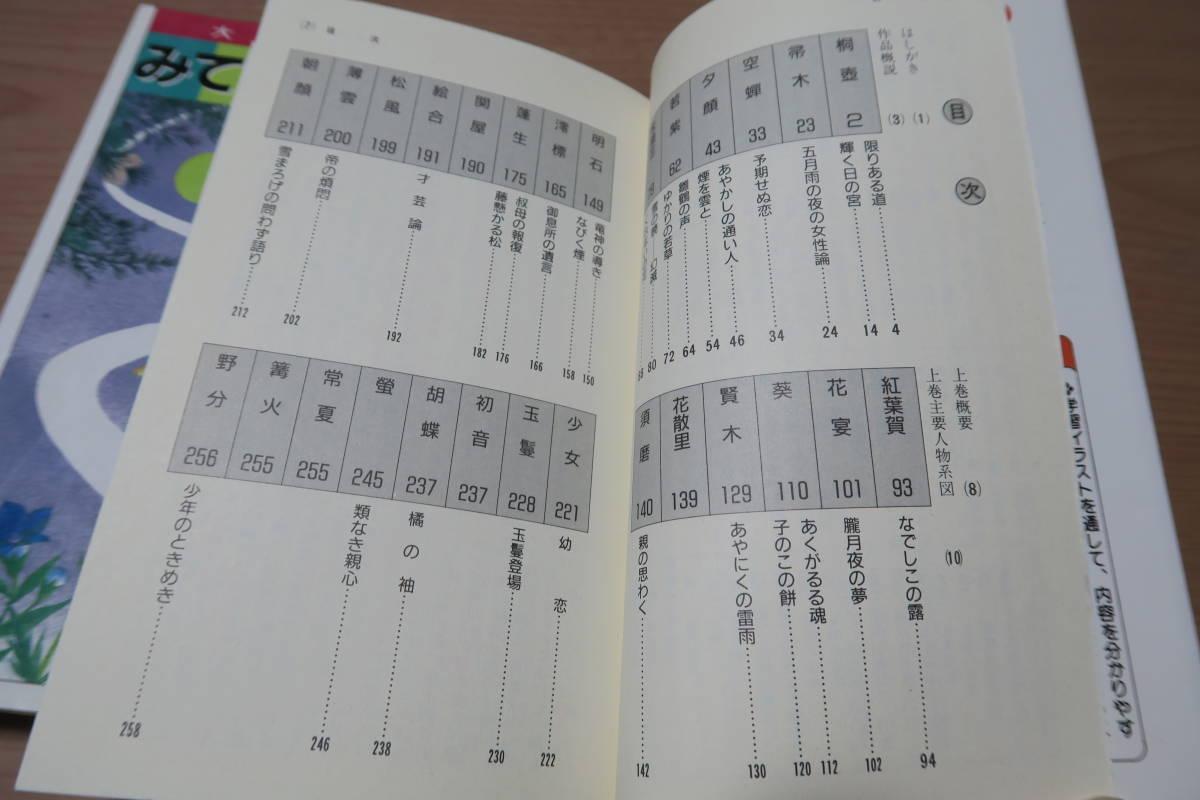 目次
はしがき (1)
作品概説 (3)
桐壺 2
限りある道 4
輝く日の宮 14
帚木 23
五月雨の夜の女性論 24
空蟬 33
予期せぬ恋 34
夕顔 43
あやかしの通い人 46
煙を雲と 54
若紫 62
雛鶴の声 64
ゆかりの若草 72
80
上巻概要 (8)
上巻主要人物系図 (10)
紅葉賀 93
なでしこの露 94
花宴 101
朧月夜の夢 102
葵 110
あくがるる魂 112
子のこの餅 120
賢木 129
あやにくの雷雨 130
花散里 139
須磨 140
親の思わく 142
(2)
目次
明石 149
竜神の導き 150
なびく煙 158
澪標 165
御息所の遺言 166
蓬生 175
叔母の報復 176
藤懸かる松 182
関屋 190
絵合 191
才芸論 192
松風 199
薄雲 200
帝の煩悶 202
朝顔 211
雪まろげの問わず語り 212
少女 221
幼恋 222
玉鬘 228
玉鬘登場 230
初音 237
胡蝶 237
橘の袖 238
螢 245
類なき親心 246
常夏 255
篝火 255
野分 256
少年のときめき 258
みて
イラストを通して、内容を分かりやす